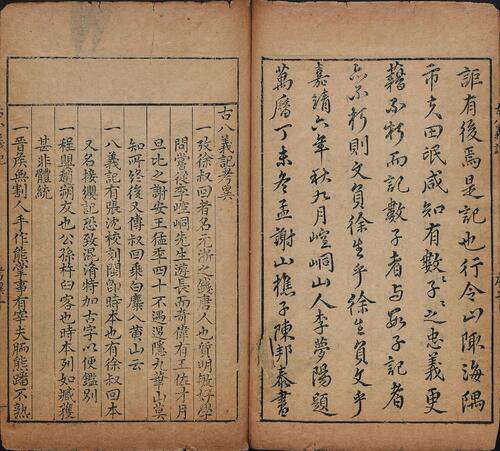 詎有後焉是記也行令山陬海隅
市夫田氓咸知有數子之忠義更
藉不朽而記數子者與數子記者
不朽則文負徐生乎徐生負文乎
嘉靖六年秋九月崆峒山人李夢陽題
萬曆丁未冬孟謝山樵子陳邦泰書
古八義記考異
一攷徐叔回者名元浙之錢唐人也質明敏好學
問嘗從李崆峒先生遊長而奇偉有王佐才月
旦比之謝安王猛年四十不遇深隱九華山莫
知所終後又傳叔回乘白麋入黃山云
一八義記有張沈校刻閩卽時本也有徐叔回本
又名接纓記恐致混淆特加古字以便鑑別
一程嬰趙朔友也公孫杵臼客也時本列如臧獲
甚非體統
一晉侯無割人手作熊掌事有宰夫胹熊蹯不熟